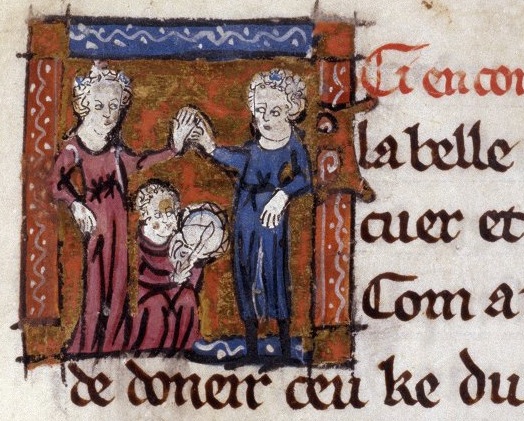 Ci encor
la belle
cuer et
Com a
de doneir ceu ke du